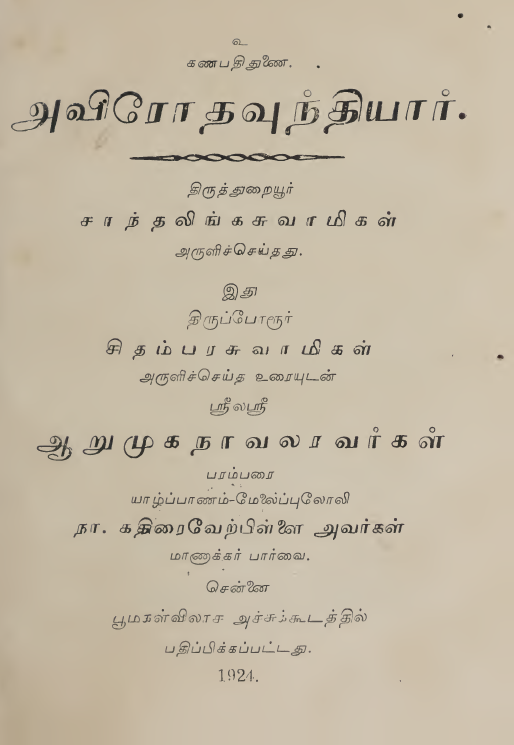 உ
கணபதி துணை.
அவிரோதவுந்தியார்.
திருத்துறையூர்
சாந்தலிங்கசுவாமிகள்
அருளிச்செய்தது.
இது
திருப்போரூர்
சிதம்பரசுவாமிகள்
அருளிச்செய்த உரையுடன்
ஸ்ரீலஸ்ரீ
ஆறுமுகநாவலரவர்கள்
பரம்பரை
யாழ்ப்பாணம்-மேலைப்புலோலி
நா. கதிரைவேற்பிள்ளை அவர்கள்
மாணாக்கர் பார்வை.
சென்னை
பூமகள்விலாச அச்சுக்கூடத்தில்
பதிப்பிக்கப்பட்டது.
1924.